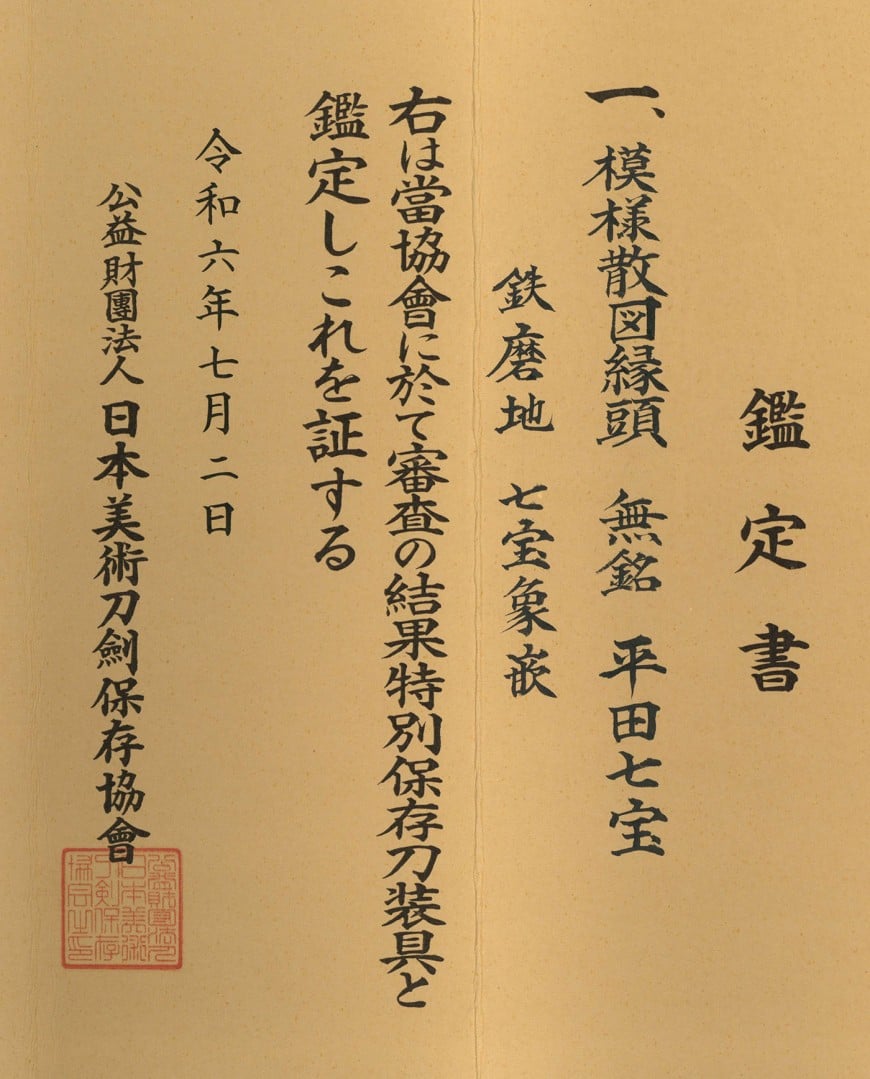 鑑定書
一、模様散図縁頭　無銘　平田七宝
鉄磨地　七宝象嵌
右は當協會に於て審査の結果特別保存刀装具と
鑑定しこれを証する
令和六年七月二日
公益財團法人 日本美術刀劍保存協會